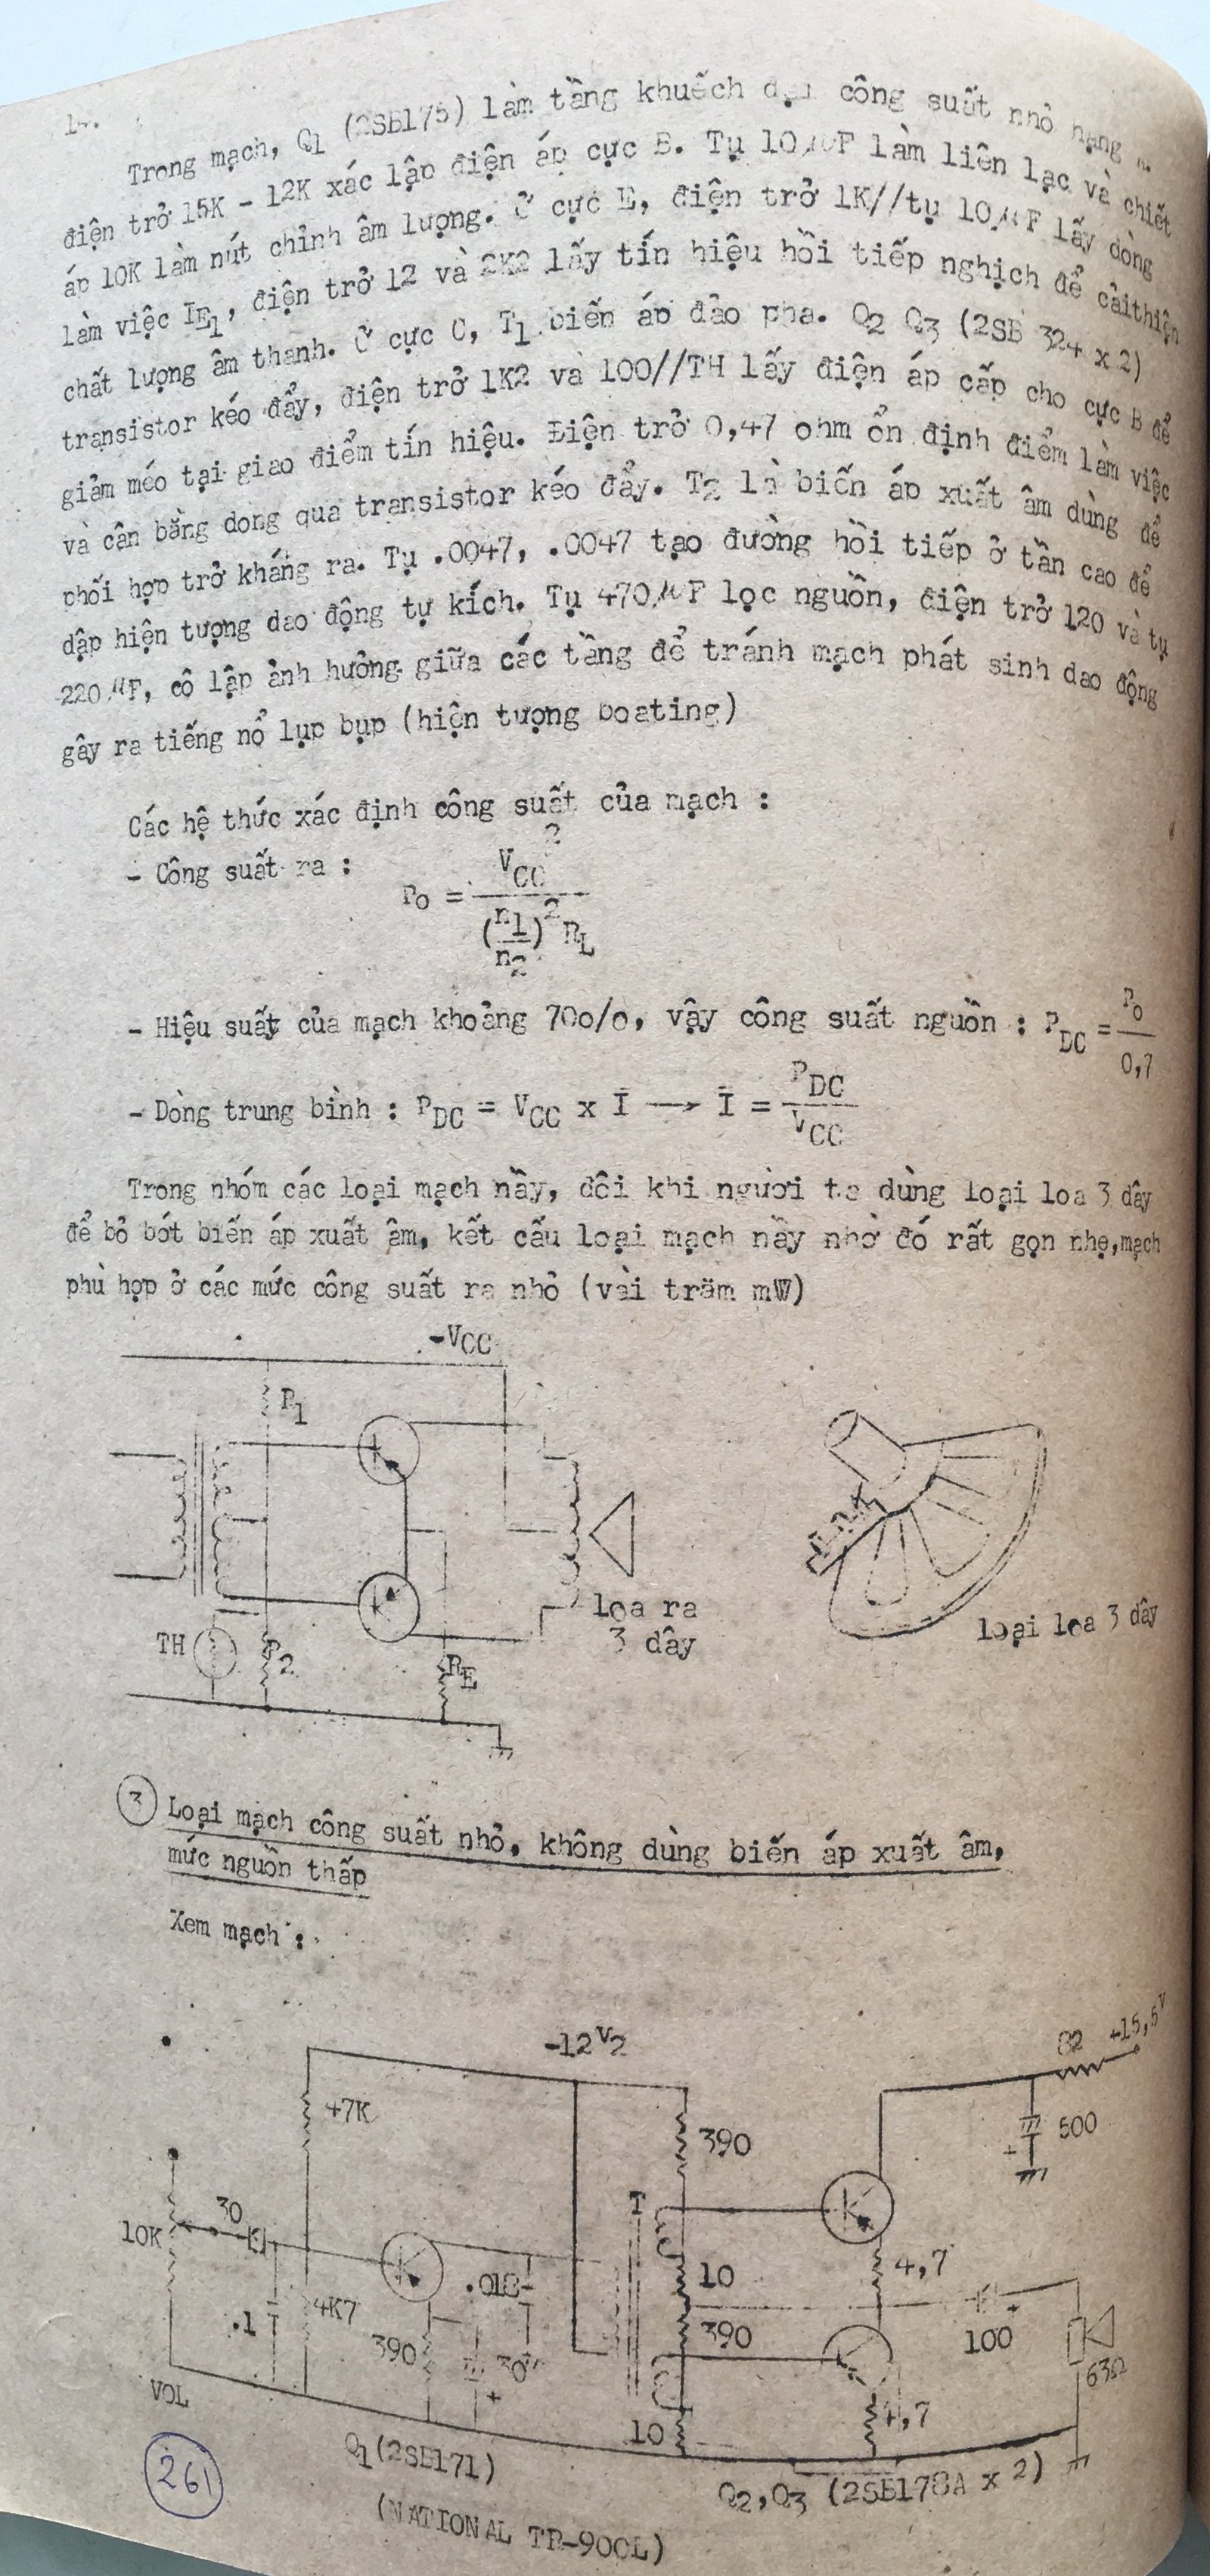 14.
Trong mạch, Q1 (2SB175) làm tầng khuếch đại công suất nhỏ hạng
điện trở 15K - 12K xác lập điện áp cực B. Tụ 10µF làm liên lạc và chiết
áp 10K làm nút chỉnh âm lượng. Ở cực E, điện trở 1K//tụ 10µF lấy dòng
làm việc IE1, điện trở 12 và 2K2 lấy tín hiệu hồi tiếp nghịch để cảithiện
chất lượng âm thanh. Ở cực C, T1 biến áp đảo pha. Q2 Q3 (2SB 324 x 2)
transistor kéo đẩy, điện trở 1K2 và 100//TH lấy điện áp cấp cho cực B để
giảm méo tại giao điểm tín hiệu. Điện trở 0,47 ohm ổn định điểm làm việc
và cân bằng dong qua transistor kéo đẩy. T2 là biến áp xuất âm dùng để
phối hợp trở kháng ra. Tụ .0047, .0047 tạo đường hồi tiếp ở tần cao để
dập hiện tượng dao động tự kích. Tụ 470µF lọc nguồn, điện trở 120 và tụ
220µF, cô lập ảnh hưởng giữa các tầng để tránh mạch phát sinh dao động
gây ra tiếng nổ lụp bụp (hiện tượng boating)
Các hệ thức xác định công suất của mạch :
- Công suất ra : Po = VCC² / (n1/n2)² RL
- Hiệu suất của mạch khoảng 70o/o, vậy công suất nguồn : PDC = Po / 0,7
- Dòng trung bình : PDC = VCC x Ī → Ī = PDC / VCC
Trong nhóm các loại mạch nầy, đôi khi người ta dùng loại loa 3 dây
để bỏ bớt biến áp xuất âm, kết cấu loại mạch nầy nhờ đó rất gọn nhẹ,mạch
phù hợp ở các mức công suất ra nhỏ (vài trăm mW)
-VCC
R1
TH
R2
RE
loa ra
3 dây
loại loa 3 dây
3 Loại mạch công suất nhỏ, không dùng biến áp xuất âm,
mức nguồn thấp
Xem mạch :
-12V2
82 -15,5V
47K
390
500
+
T
30
10K
.018
10
4,7
.1
4K7
390
30
+
390
100
+
63Ω
VOL
10
4,7
Q1(2SB171)
Q2,Q3 (2SB178A x 2)
(NATIONAL TR-900L)
261